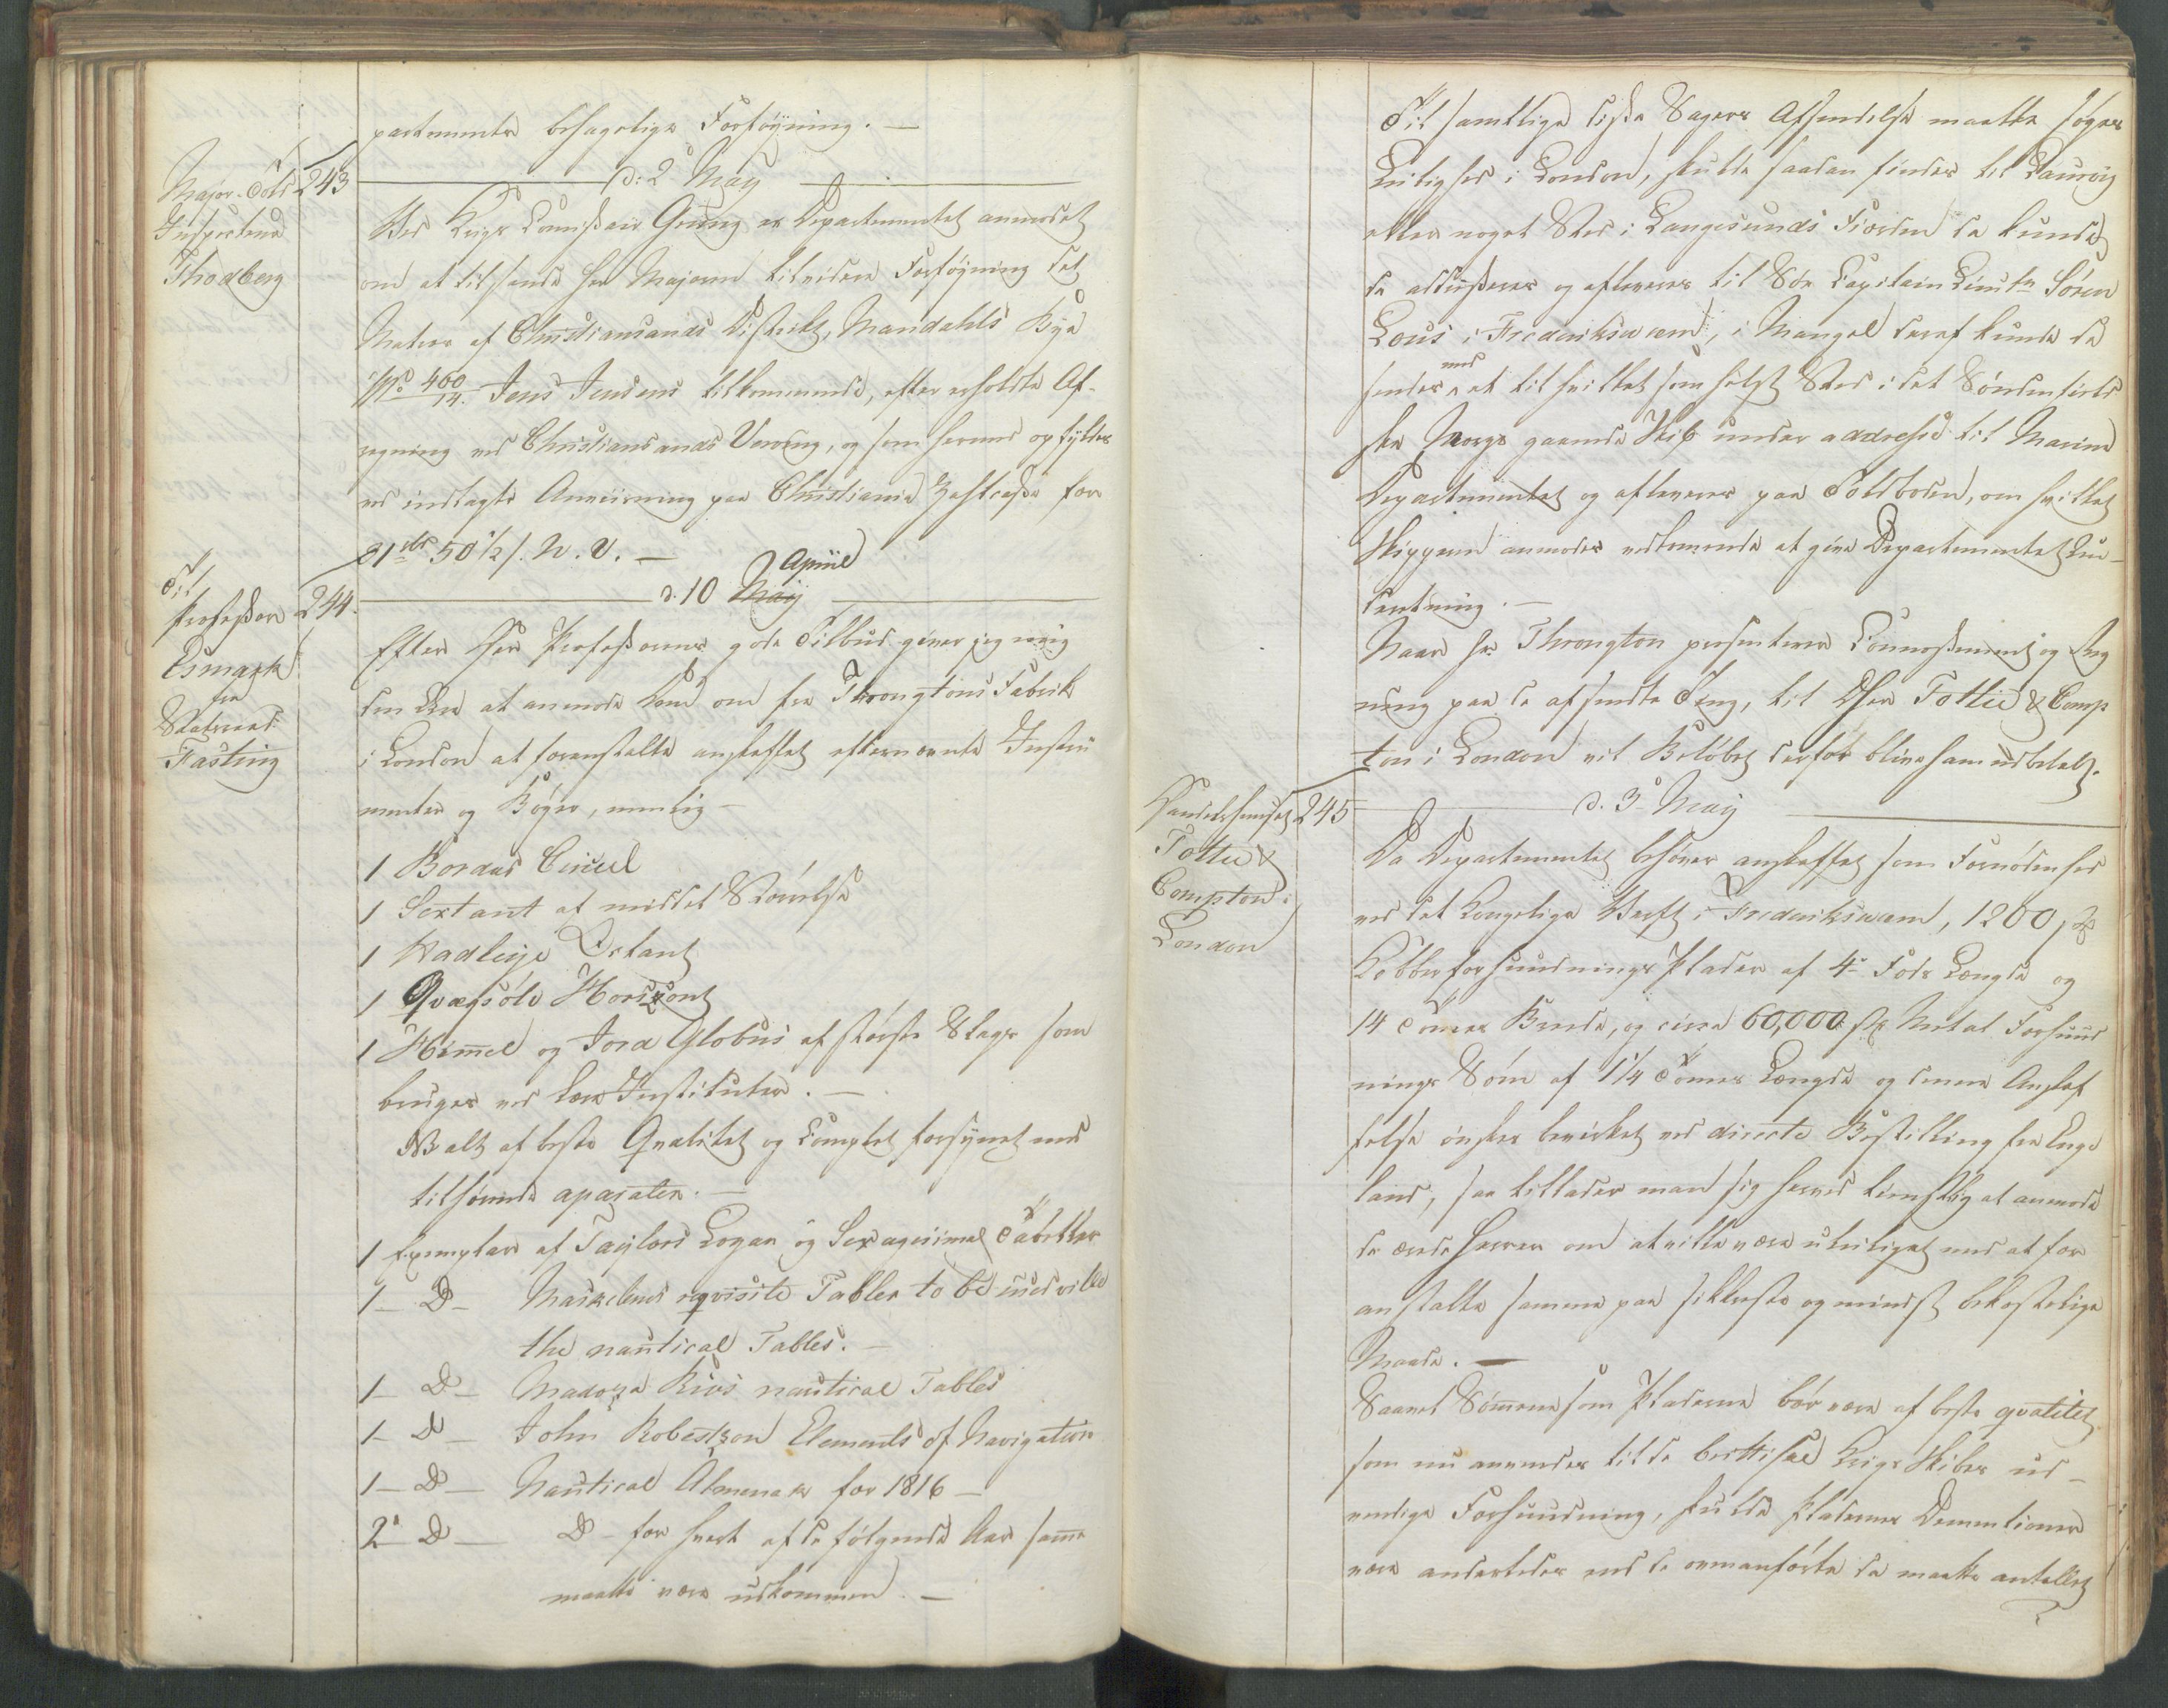 partements behagelige Forføyning. —
Major. Told
Inspecteur
Thodberg
243
d: 2 May
Ved Krigs Commissair Grüng er Departementet anmodet
om at tilsende Her Majoren til videre Forføyning det
Matros af Christiansands District, Mandahls Bye
No 460/14. Jens Jensens tilkommende, efter erholdte Af-
regning ved Christiansands Værving, og som herved opfyldes
ved indlagte Anviisning paa Christiania Zahlcasse for
21 rbr 50 1/2 s. N. V. —
Til
Professor
Esmark
fra
Statsraad
Fasting
244.
d. 10 May April
Efter Her Professorens gode Tilbud giver jeg mig
den Ære at anmode dem om fra Throngtons Fabrik
i London at foranstalte anskaffet efternævnte Instru
menter og Bøger, nemlig —
1 Bordas Circul
1 Sextant af middel Størrelse
1 Hadleye Octant
1 Qvægsølv Horizont
1 Himmel og Jord Globus af største Slags som
bruges ved Lære Instituter. —
NB alt af beste Qvalitet og Complet forsynet med
tilhørende aparater. —
1 Exemplar af Taylors Logar og Sexagesimal Tabeller
1 — D — Maskelines reqvisite Tables to be used with
the nautical Tables. —
1 — D — Madoza Rios nautical Tables
1 — D — John Robertson Elements of Navigation
1 — D — Nautical Almenak for 1816 —
2 — D — D — for hvert af de følgende Aar samme
maatte være udkommen. —
Til samtlige disse Sagers Afsendelse maatte søges
Leilighed i London, skulde saadan findes til Laurvig
eller noget Sted i Langesunds Fiorden da kunde
de adresseres og afleveres til Hr Capitain Lieutn Sóren
Lous i Fredriksværn, i Mangel deraf kunde de
sendes med et til hvilket som helst Sted i det Søndenfield
ske Norge gaaende Skib under addresse til Marine
Departementet og afleveres paa Toldboden, om hvilket
Skipperen anmodes vedkommende at give Departementet Un-
derretning. —
Naar Hr. Throngton presenterer Connossement og Reg
ning paa de afsendte Ting, til DHer Tottie & Comp
ton i London vil Beløbet derfor blive ham udbetalt.
Handelshuuset
Tottie &
Compton i
London
245
d. 3 May
Da Departementet behøver anskaffet som Fornødenhed
ved det Kongelige Værft i Fredriksværn, 1200 stk
Kobberforhuudnings Plader af 4 Fods Længde og
14 Tommer Brede, og circa 60,000 stk Metal Forhuud
nings Søm af 1 1/4 Tommes Længde og denne Anskaf
felse ønskes bevirket ved directe Bestilling fra Enge
land, saa tillader man sig herved tienstlig at anmode
de ærede Herrer om at ville være uleiliget med at for
anstalte samme paa sikkerste og mindst bekostelige
Maade. —
Saavel Sømmene som Pladerne bør være af beste qvalitet
som nu anvendes til de brittiske Krigs Skibes ud-
vendige Forhuudning, skulde Pladernes Dimentioner
være anderledes end de ovenanførte da maatte antallet